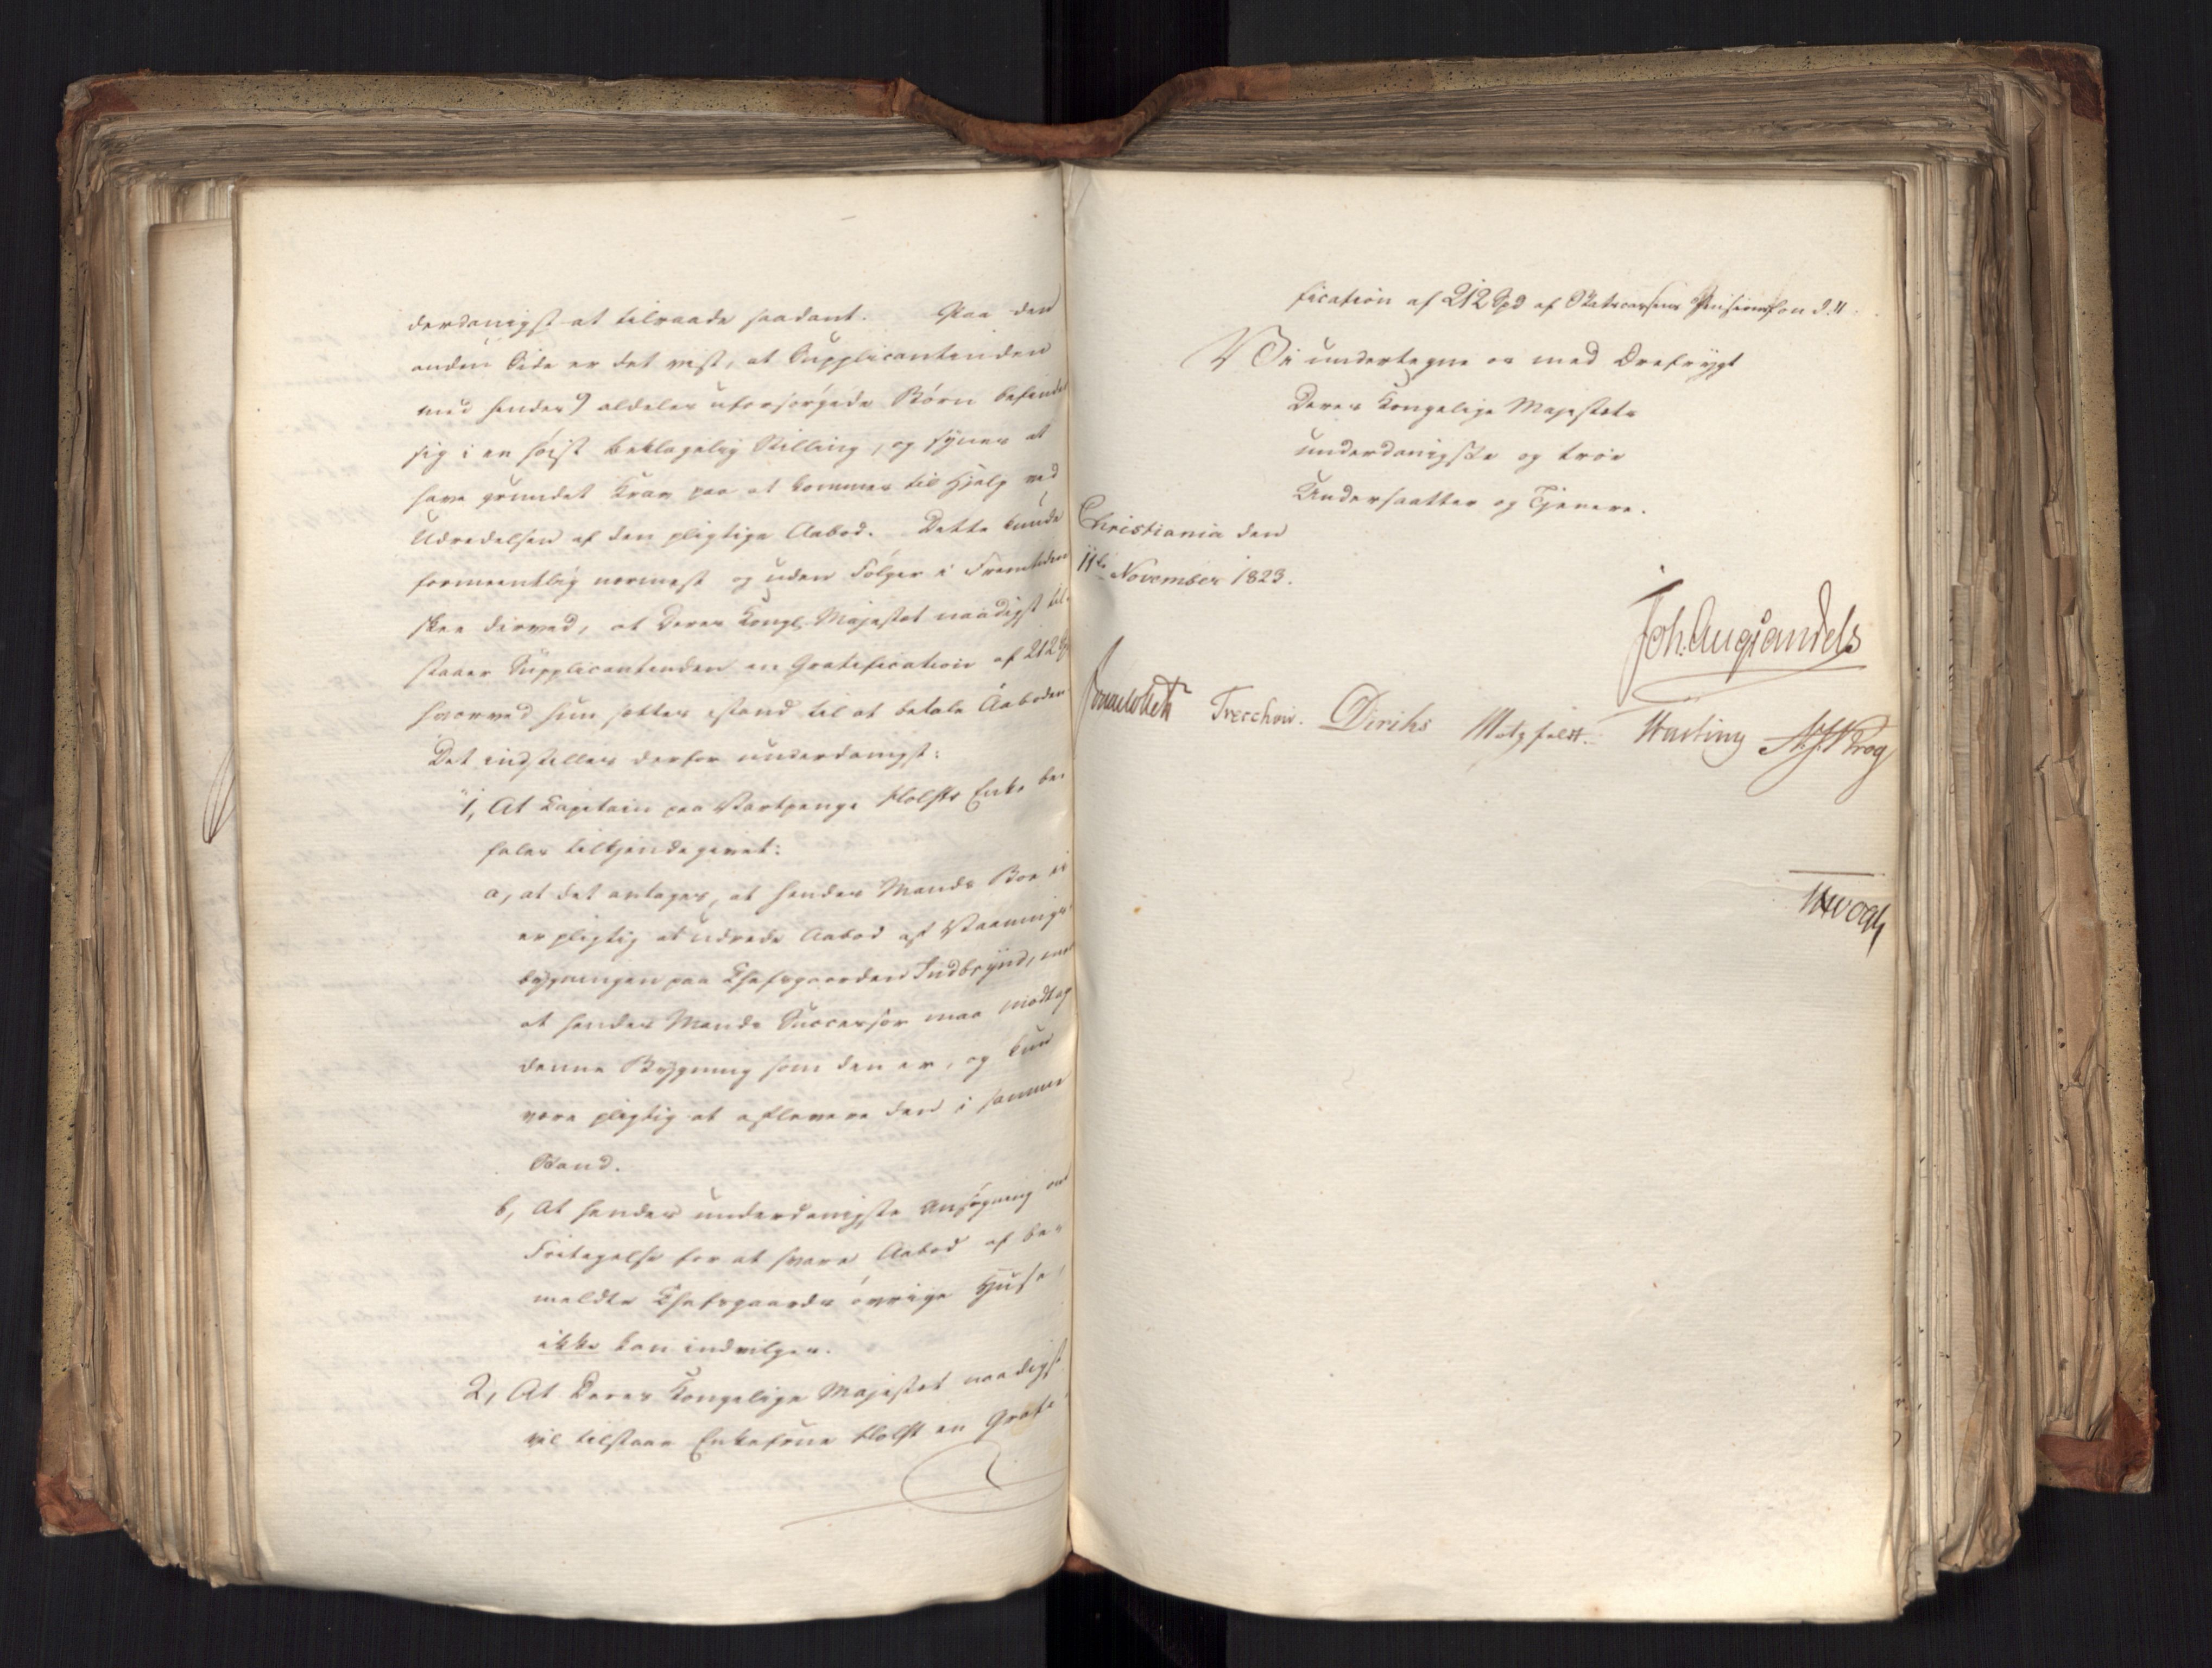 derdanigst at tilraade saadant. Paa den
anden Side er det vist, at Supplicantinden
med hendes 9 aldeles uforsørgede Børn befinder
sig i en høist beklagelig Stilling, og synes at
have grundet Krav paa at kommes til Hjelp ved
Udredelsen af den pligtige Aabod. Dette kunde
formeentlig nærmest og uden Følger i Fremtiden
skee derved, at Deres Kongl. Majestet naadigst til-
staaer Supplicantinden en Gratification af 212 Spd
hvorved hun sættes istand til at betale Aaboden
Det indstilles derfor underdanigst:
1, At Capitain paa Vartpenge Holsts Enke be-
fales tilkjendegivet:
a, at det antages, at hendes Mands Boe ei
er pligtig at udrede Aabod af Vaanings-
bygningen paa Chefsgaarden Indbrynd, men
at hendes Mands Successor maa modtage
denne Bygning som den er, og kun
være pligtig at aflevere den i samme
Stand.
b, At hendes underdanigste Ansøgning om
Fritagelse for at svare Aabod af be-
meldte Chefsgaards øvrige Huse,
ikke kan indvilges.
2, At Deres Kongelige Majestet naadigst
vil tilstaae Enkefrue Holst en Grati-
fication af 212 Spd af Statscassens Pensionsfond. "
Vi undertegne os med Ærefrygt
Deres Kongelige Majestets
underdanigste og troe
Undersaatter og Tjenere.
Christiania den
11te November 1823.
Joh. Aug. Sandels
Jonas Collett Treschow. Diriks Motzfeldt. Hasting Krog
Vogt